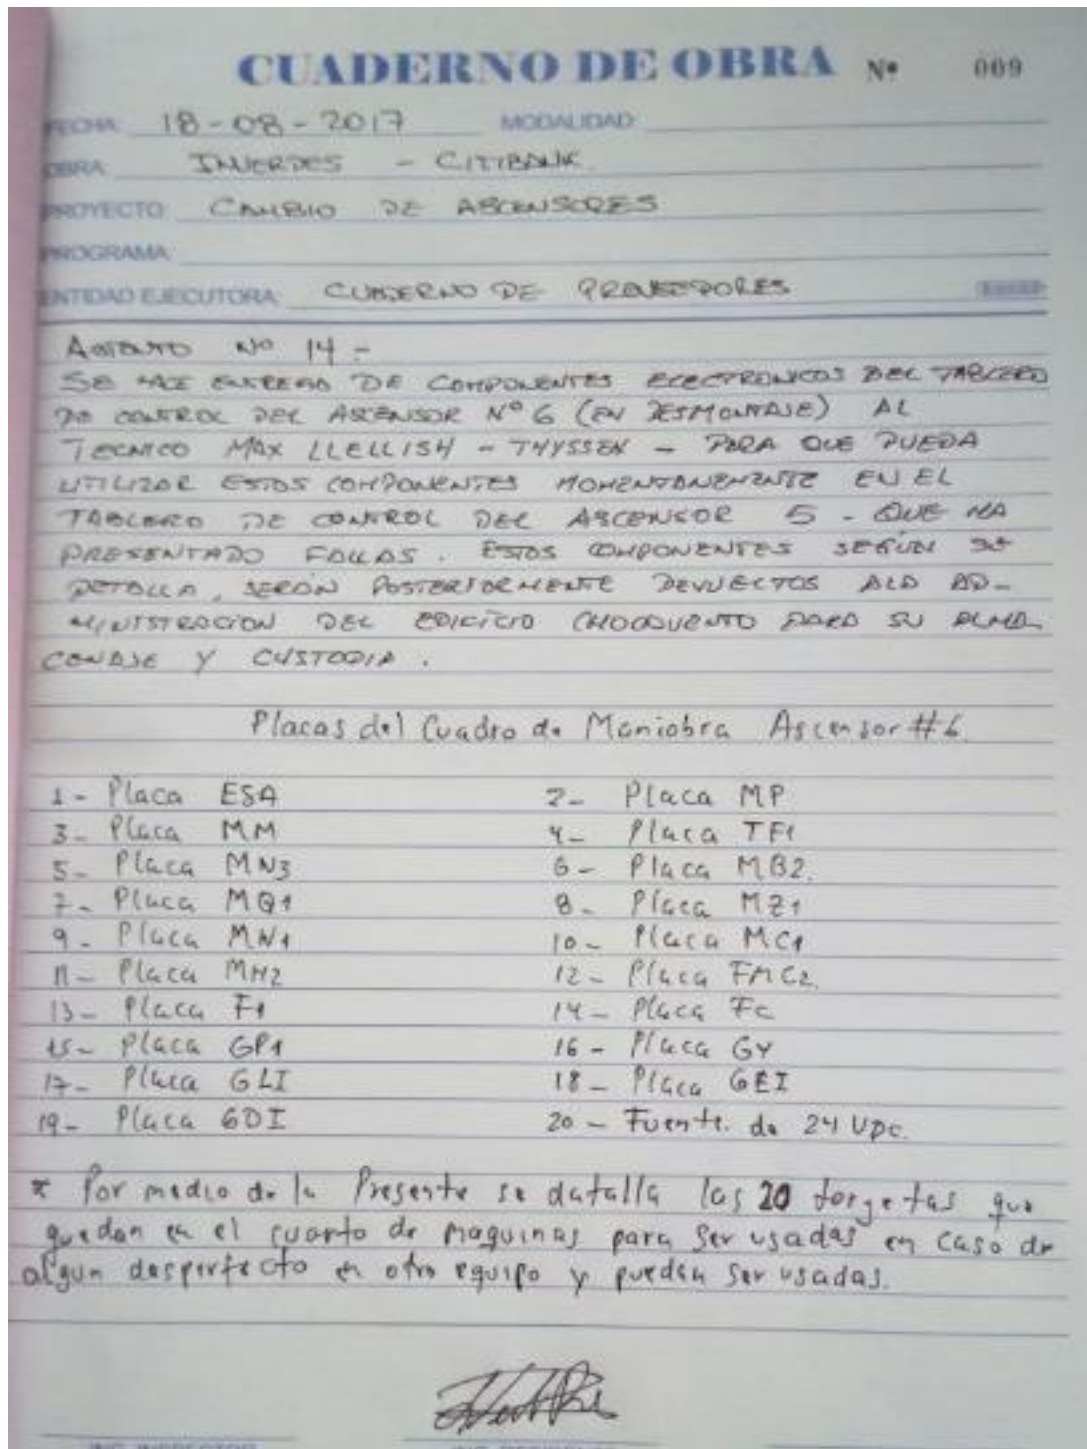 CUADERNO DE OBRA Nº 009
FECHA: 18-08-2017 MODALIDAD:
OBRA: INVERDES - CITIBANK.
PROYECTO: CAMBIO DE ASCENSORES
PROGRAMA:
ENTIDAD EJECUTORA: CUADERNO DE PROVEEDORES
ASIENTO Nº 14 -
SE HACE ENTREGA DE COMPONENTES ELECTRONICOS DEL TABLERO
DE CONTROL DEL ASCENSOR Nº 6 (EN DESMONTAJE) AL
TECNICO MAX LLELLISH - THYSSEN - PARA QUE PUEDA
UTILIZAR ESTOS COMPONENTES MOMENTANEMENTE EN EL
TABLERO DE CONTROL DEL ASCENSOR 5 - QUE HA
PRESENTADO FALLAS. ESTOS COMPONENTES SEGUN SE
DETALLA, SERÁN POSTERIORMENTE DEVUELTOS A LA AD-
MINISTRACION DEL EDIFICIO CHOCAVENTO PARA SU ALMA-
CENAJE Y CUSTODIA.
Placas del Cuadro de Maniobra Ascensor #6.
1- Placa ESA 2- Placa MP
3- Placa MM 4- Placa TF1
5- Placa MN3 6- Placa MB2.
7- Placa MQ1 8- Placa MZ1
9- Placa MN1 10- Placa MC1
11- Placa MH2 12- Placa FMC2.
13- Placa F1 14- Placa FC
15- Placa GP1 16- Placa GY
17- Placa GLI 18- Placa GEI
19- Placa GDI 20- Fuente de 24 VDC.
* Por medio de la Presente se datalla las 20 torgetas que
quedan en el cuarto de maquinas para ser usadas en caso de
algun desperfecto en otro equipo y puedan ser usadas.
ING. INSPECTOR ING. RESIDENTE